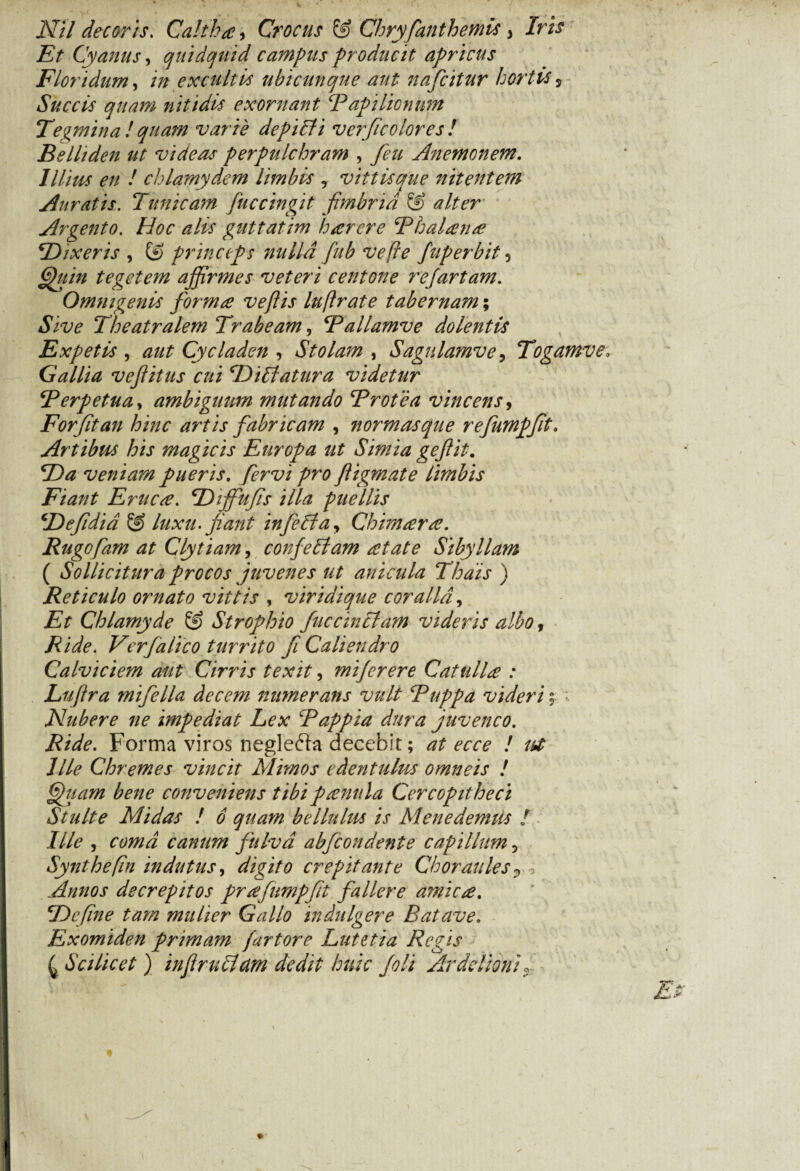 Nil decoris. Calthæ, Crocus & Chryſanthemis, Iris
Et Cyanus, quidquid campus producit apricus
Floridum, in excultis ubicunque aut naſcitur hortis,
Succis quam nitidis exornant Papilionum
Tegmina! quam varie depicti verſicolores!
Belliden ut videas perpulchram, ſeu Anemonem.
Illius en! chlamydem limbis, vittisque nitentem
Auratis. Tunicam ſuccingit fimbriâ & alter
Argento. Hoc alis guttatim hærere Phalænæ
Dixeris, & princeps nullâ ſub veſte ſuperbit,
Quin tegetem affirmes veteri centone reſartam.
Omnigenis formæ veſtis luſtrate tabernam;
Sive Theatralem Trabeam, Pallamve dolentis
Expetis, aut Cycladen, Stolam, Sagulamve, Togamve.
Gallia veſtitus cui Dictatura videtur
Perpetua, ambiguum mutando Protëa vincens,
Forſitan hinc artis fabricam, normasque reſumpſit.
Artibus his magicis Europa ut Simia geſtit.
Da veniam pueris. ſervi pro ſtigmate limbis
Fiant Erucæ. Diffuſis illa puellis
Deſidiâ & luxu. fiant inſecta, Chimæræ.
Rugoſam at Clytiam, confectam ætate Sibyllam
( Sollicitura procos juvenes ut anicula Thaïs )
Reticulo ornato vittis, viridique corallâ,
Et Chlamyde & Strophio ſuccinctam videris albo,
Ride. Verſalico turrito ſi Caliendro
Calviciem aut Cirris texit, miſerere Catullæ :
Luſtra miſella decem numerans vult Puppa videri;
Nubere ne impediat Lex Pappia dura juvenco.
Ride. Forma viros neglecta decebit; at ecce ! ut
Ille Chremes vincit Mimos edentulus omneis !
Quam bene conveniens tibi pænula Cercopitheci
Stulte Midas ! ô quam bellulus is Menedemus !
Ille, comâ canum fulvâ abſcondente capillum,
Syntheſin indutus, digito crepitante Choraules,
Annos decrepitos præſumpſit fallere amicæ.
Deſine tam mulier Gallo indulgere Batave.
Exomiden primam ſartore Lutetia Regis
( Scilicet ) inſtructam dedit huic ſoli Ardelioni,
Et